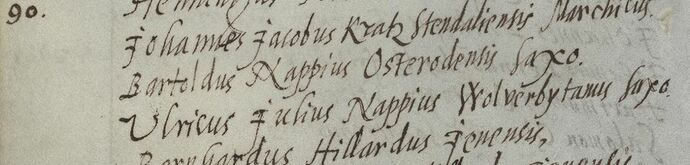 90.
Johannes Jacobus Kratz Stendaliensis Marchicus.
Bartoldus Nappius Osterodensis Saxo.
Ulricus Julius Nappius Wolverbytanus Saxo.
Bernhardus Hillardus Jenensis,